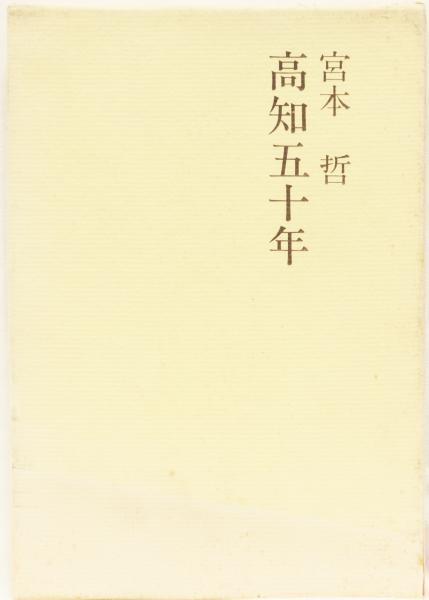 宮本 哲
高知五十年